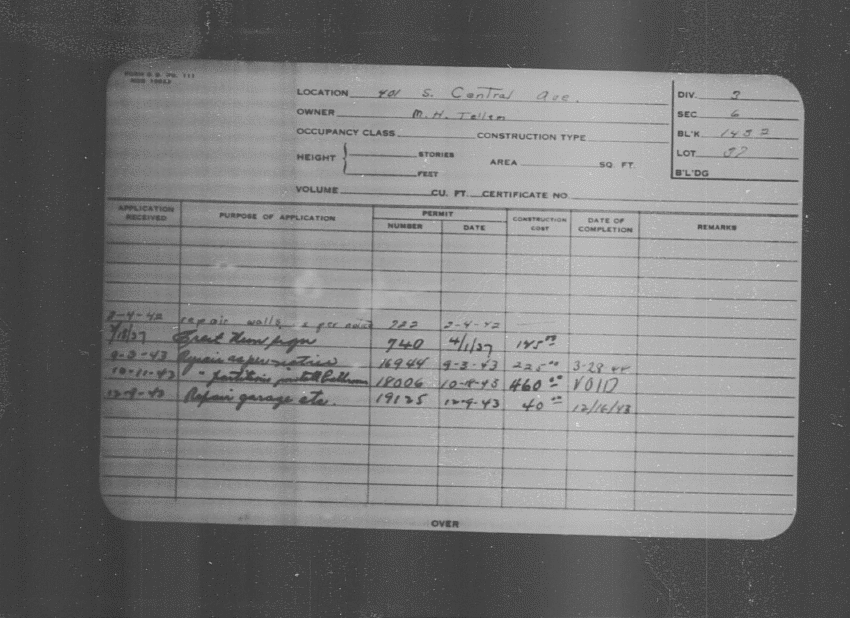 LOCATION 401 S. Central Ave.
OWNER M. H. Tellem
OCCUPANCY CLASS CONSTRUCTION TYPE
HEIGHT STORIES
FEET
AREA SQ. FT.
VOLUME CU. FT. CERTIFICATE NO.
DIV. 3
SEC 6
BL'K
LOT 37
B'L'DG
APPLICATION RECEIVED PURPOSE OF APPLICATION PERMIT NUMBER DATE CONSTRUCTION COST DATE OF COMPLETION REMARKS
2-4-42 repair walls 722 2-4-42
Erect sign 740 4/1/27
9-3-43 Repair as per notice 16944 9-3-43 225 3-28-44
10-11-43 " partitions 18006 460 VOID
12-9-43 Repair garage etc. 19125 12-9-43 40 12/16/43
OVER